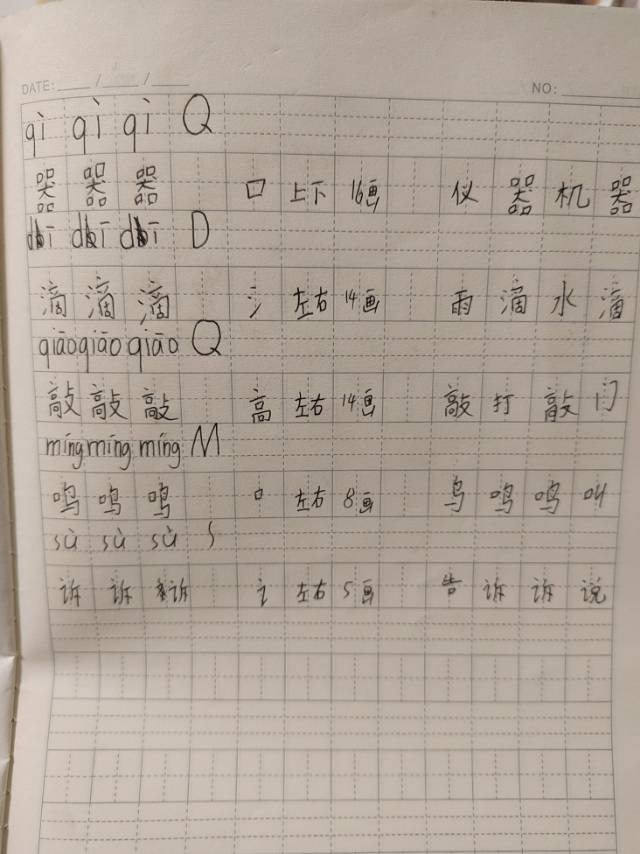 DATE: ____ / ____ / ____ NO: ____
qì qì qì Q
器 器 器 口 上下 16画 仪 器 机 器
dī dī dī D
滴 滴 滴 氵 左右 14画 雨 滴 水 滴
qiāo qiāo qiāo Q
敲 敲 敲 高 左右 14画 敲 打 敲 门
míng míng míng M
鸣 鸣 鸣 口 左右 8画 鸟 鸣 鸣 叫
sù sù sù S
诉 诉 诉 讠 左右 5画 告 诉 诉 说